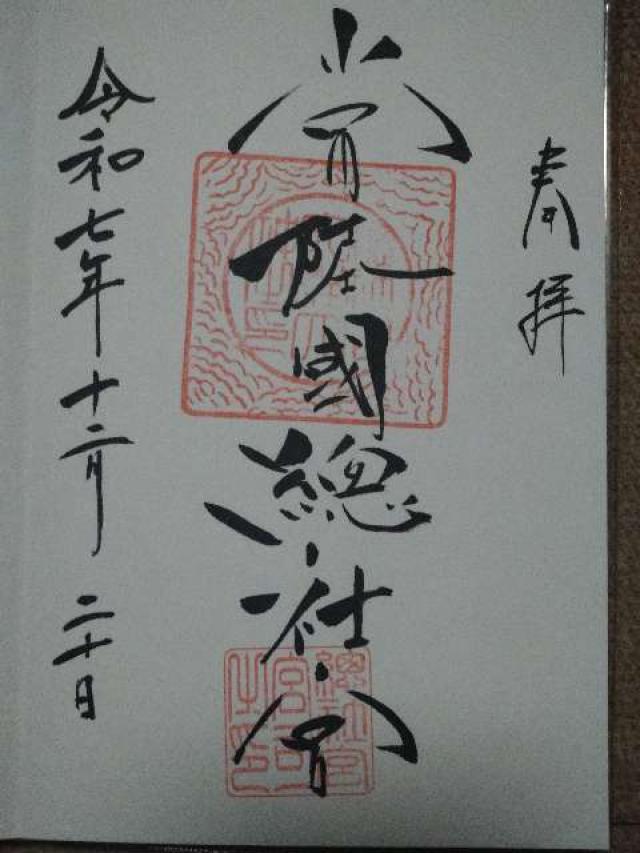 奉拝
常陸國總社宮
令和七年十二月二十日